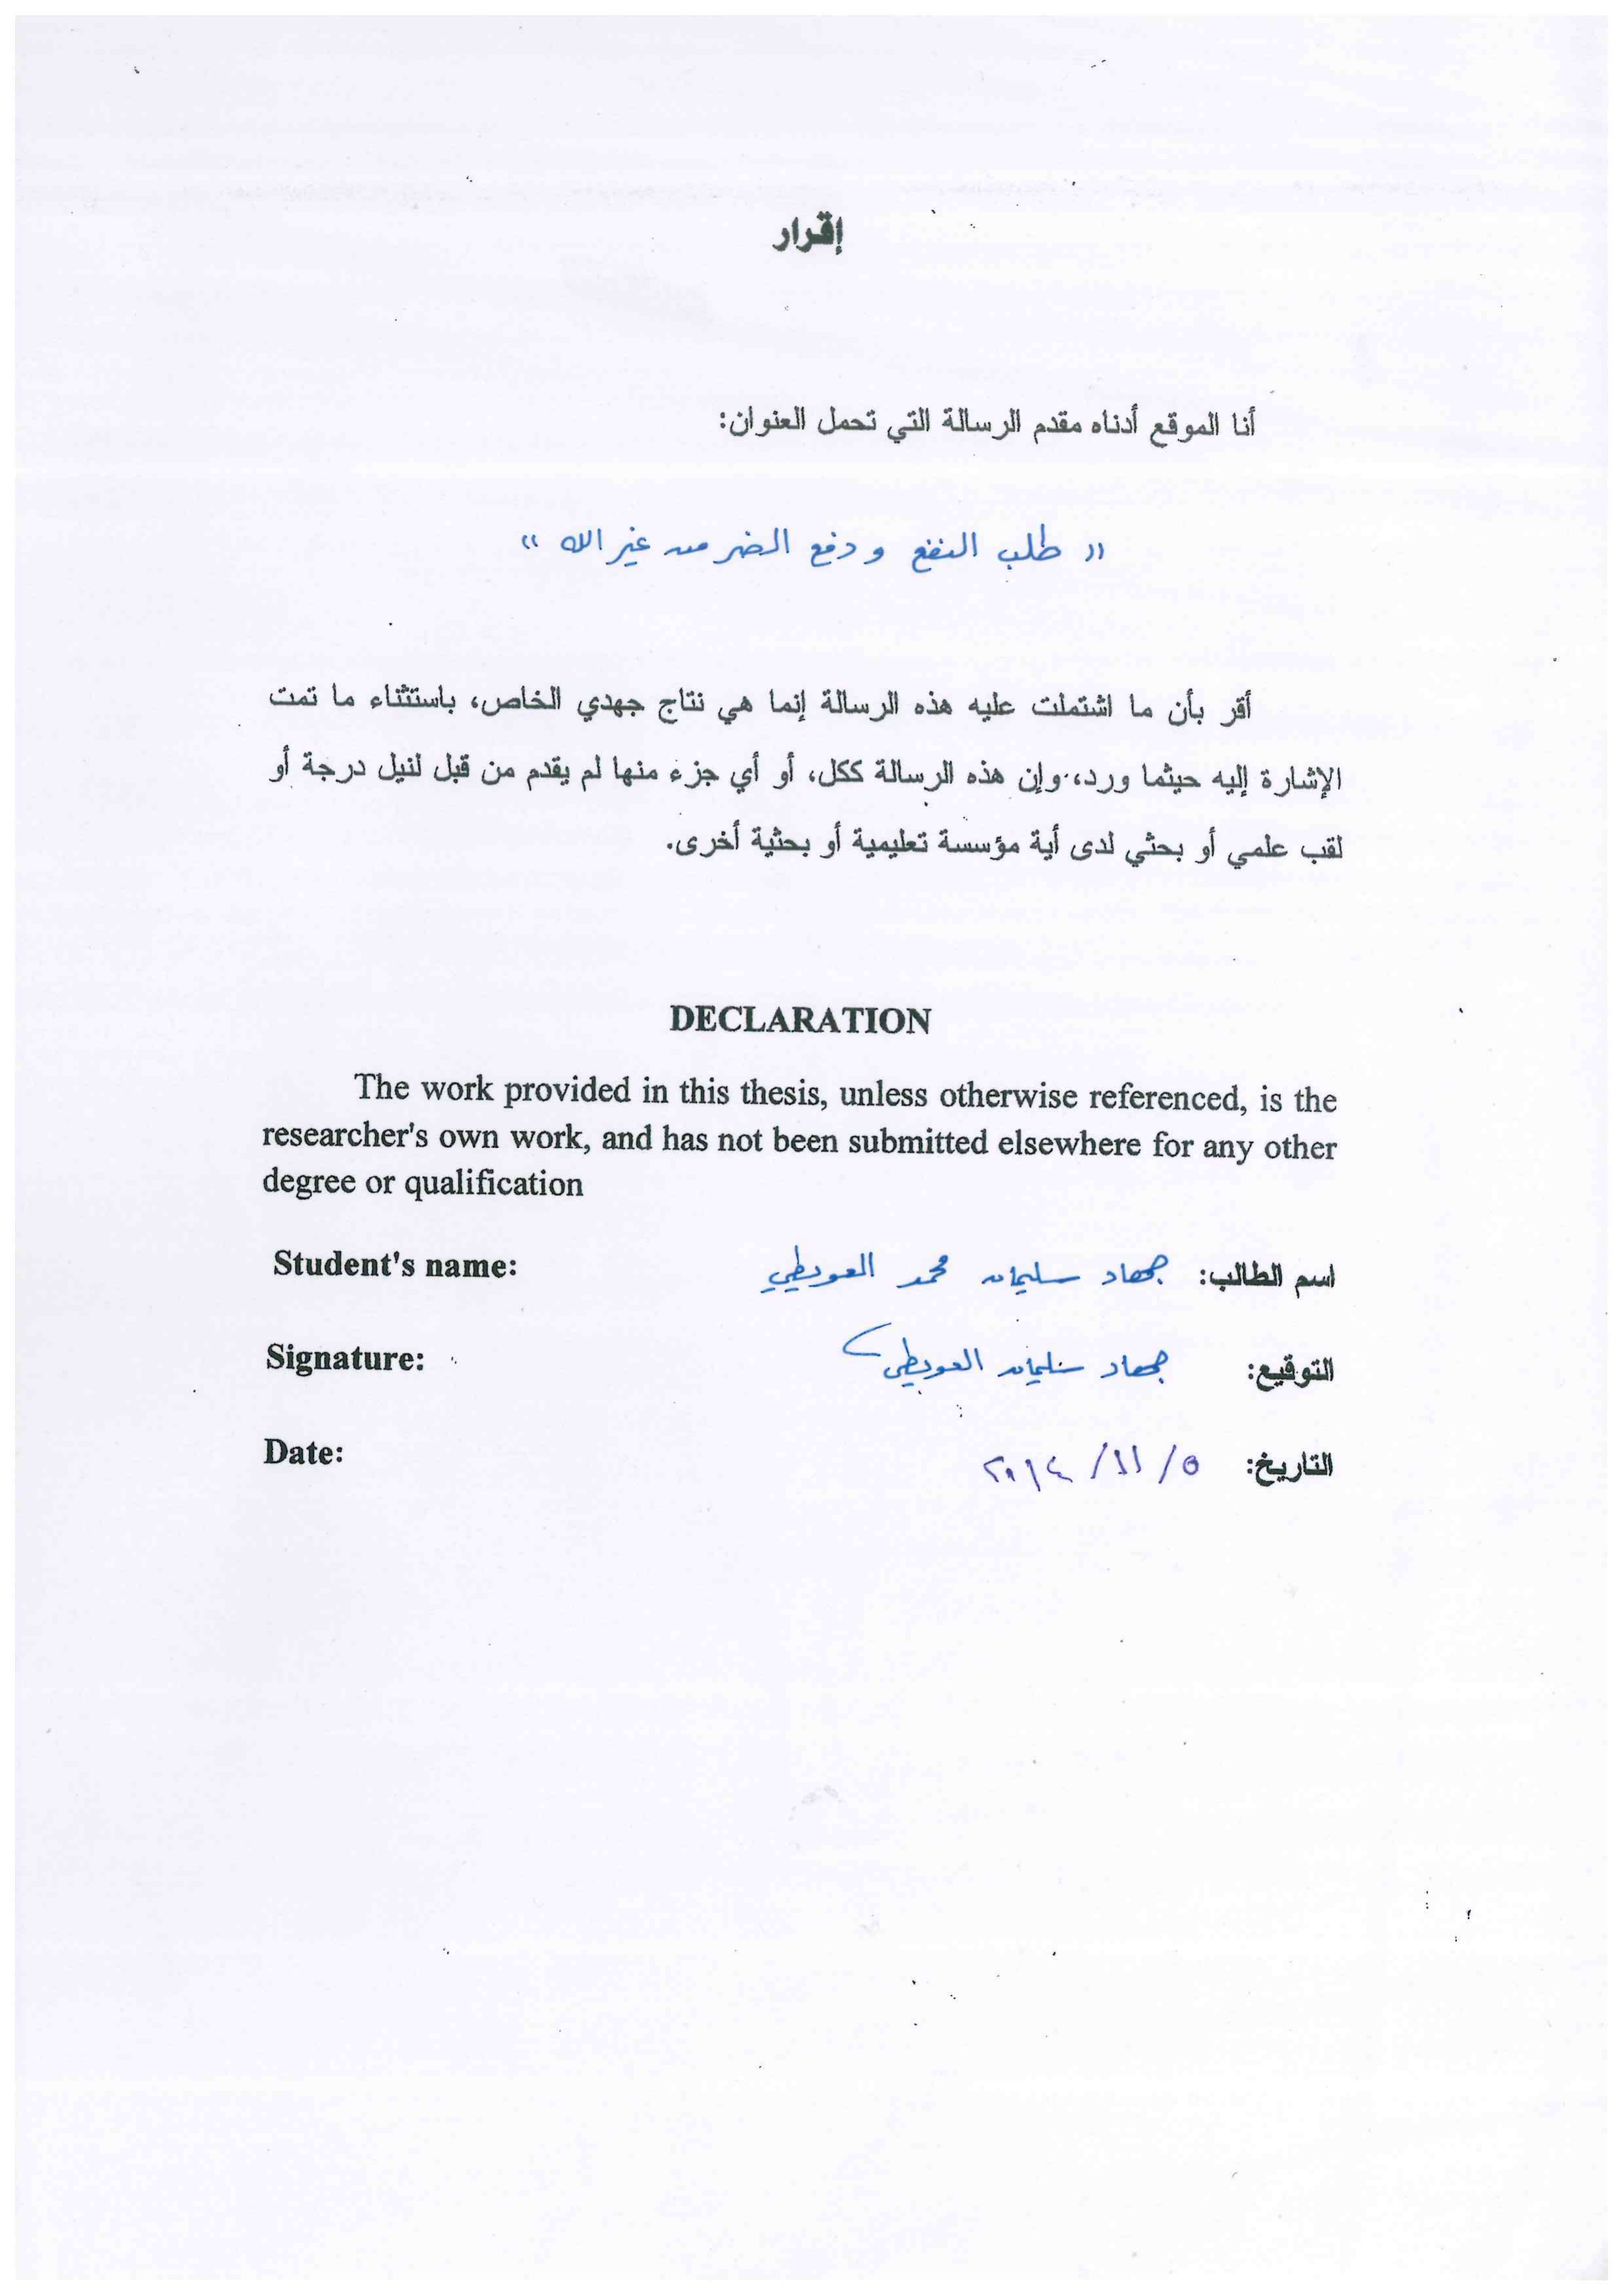 إقرار
أنا الموقع أدناه مقدم الرسالة التي تحمل العنوان:
(( طلب النفع و دفع الضر من غير الله ))
أقر بأن ما اشتملت عليه هذه الرسالة إنما هي نتاج جهدي الخاص، باستثناء ما تمت
الإشارة إليه حيثما ورد، وإن هذه الرسالة ككل، أو أي جزء منها لم يقدم من قبل لنيل درجة أو
لقب علمي أو بحثي لدى أية مؤسسة تعليمية أو بحثية أخرى.
DECLARATION
The work provided in this thesis, unless otherwise referenced, is the
researcher's own work, and has not been submitted elsewhere for any other
degree or qualification
Student's name: اسم الطالب: جهاد سليمان محمد العويطي
Signature: التوقيع: جهاد سليمان العويطي
Date: التاريخ: ٥/ ١١/ ٢٠١٤